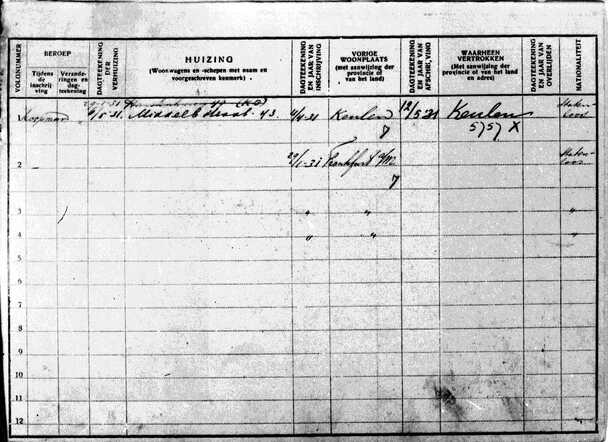 VOLGNUMMER
BEROEP
Tijdens de inschrijving
Veranderingen en dagteekening
DAGTEEKENING DER VERHUIZING
HUIZING
(Woonwagens en -schepen met naam en voorgeschreven kenmerk)
DAGTEEKENING EN JAAR VAN INSCHRIJVING
VORIGE WOONPLAATS
(met aanwijzing der provincie of van het land)
DAGTEEKENING EN JAAR VAN AFSCHRIJVING
WAARHEEN VERTROKKEN
(Met aanwijzing der provincie of van het land en adres)
DAGTEEKENING EN JAAR VAN OVERLIJDEN
NATIONALITEIT
1 Koopman Middelb straat 43 Keulen 12/5 31 Keulen Staten-
loos
7 5757 X
2 29/1-31 Frankfurt a/M Staten-
loos
7
3 " " "
4 " " "
5
6
7
8
9
10
11
12